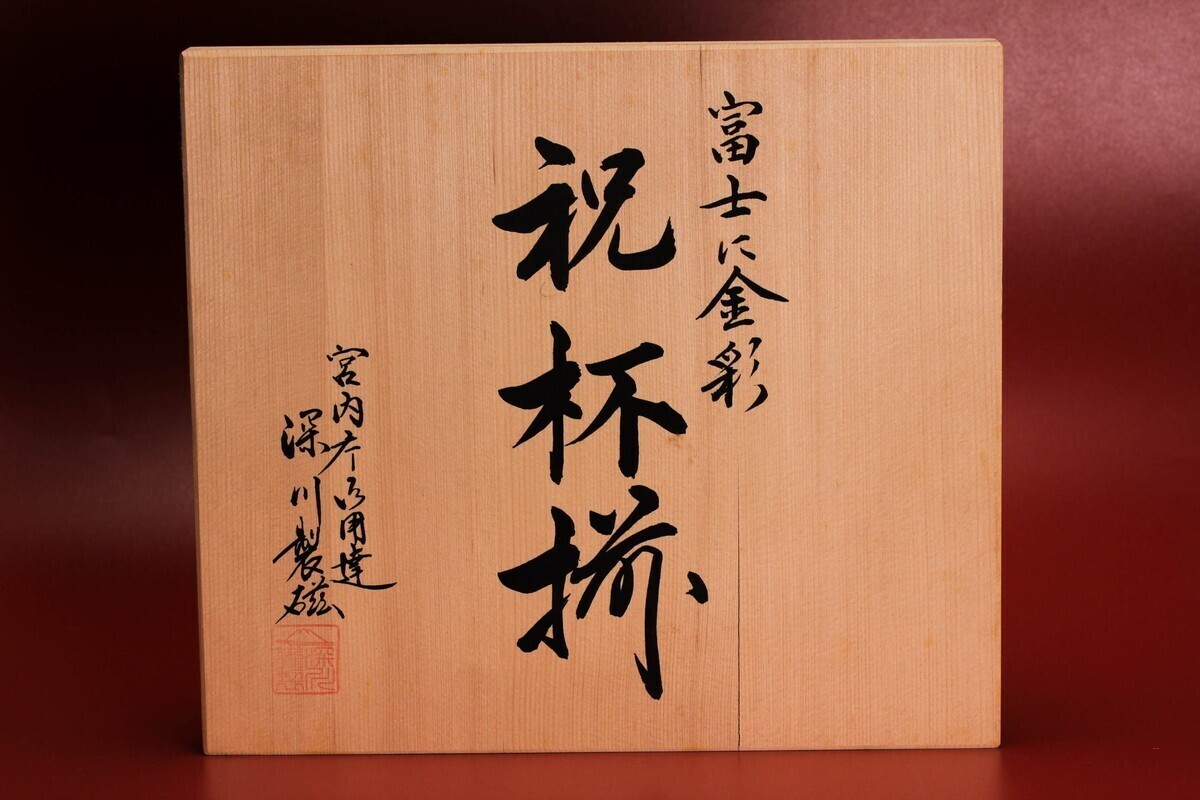 富士に金彩
祝杯揃
宮内庁御用達
深川製磁